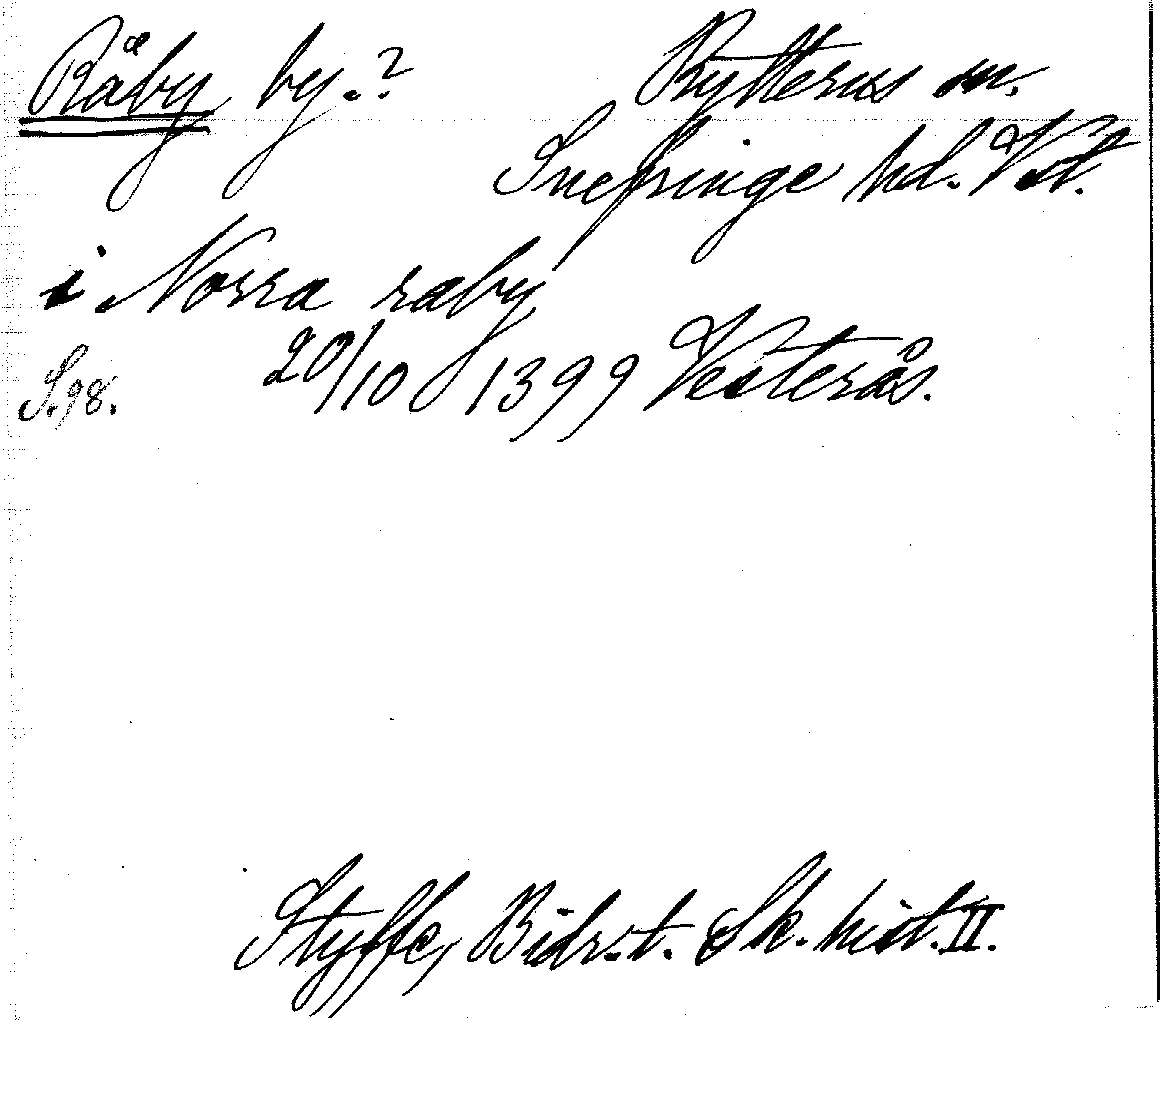 Råby by.? Rytterns sn.
Snefringe hd. Vstl.
i Norra raby
S. 98. 20/10 1399 Vesterås.
Styffe, Bidr. t. Sk. hist. II.